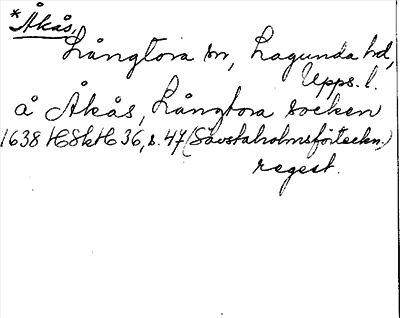 * Åkås,
Långtora sn, Lagunda hd,
Upps. l.
å Åkås, Långtora socken
1638 HSkH 36, s. 47 (Sävstaholmsförteckn.)
regest.